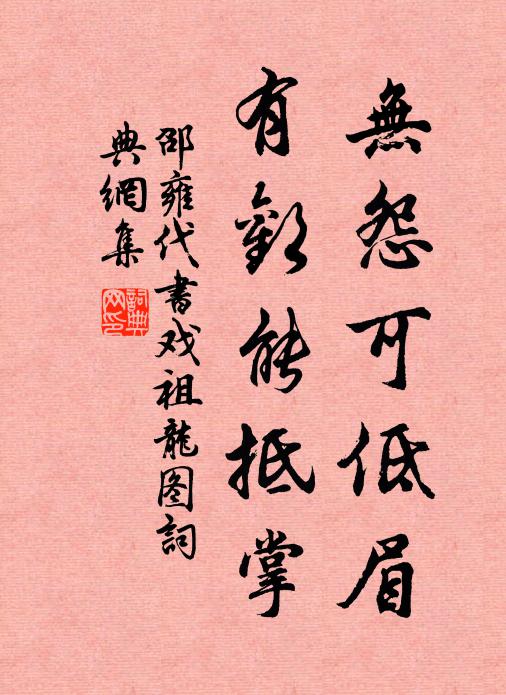 無怨可低眉
有歡能抵掌
邵雍代書戏祖龍图詞
典網集
詞典
网印